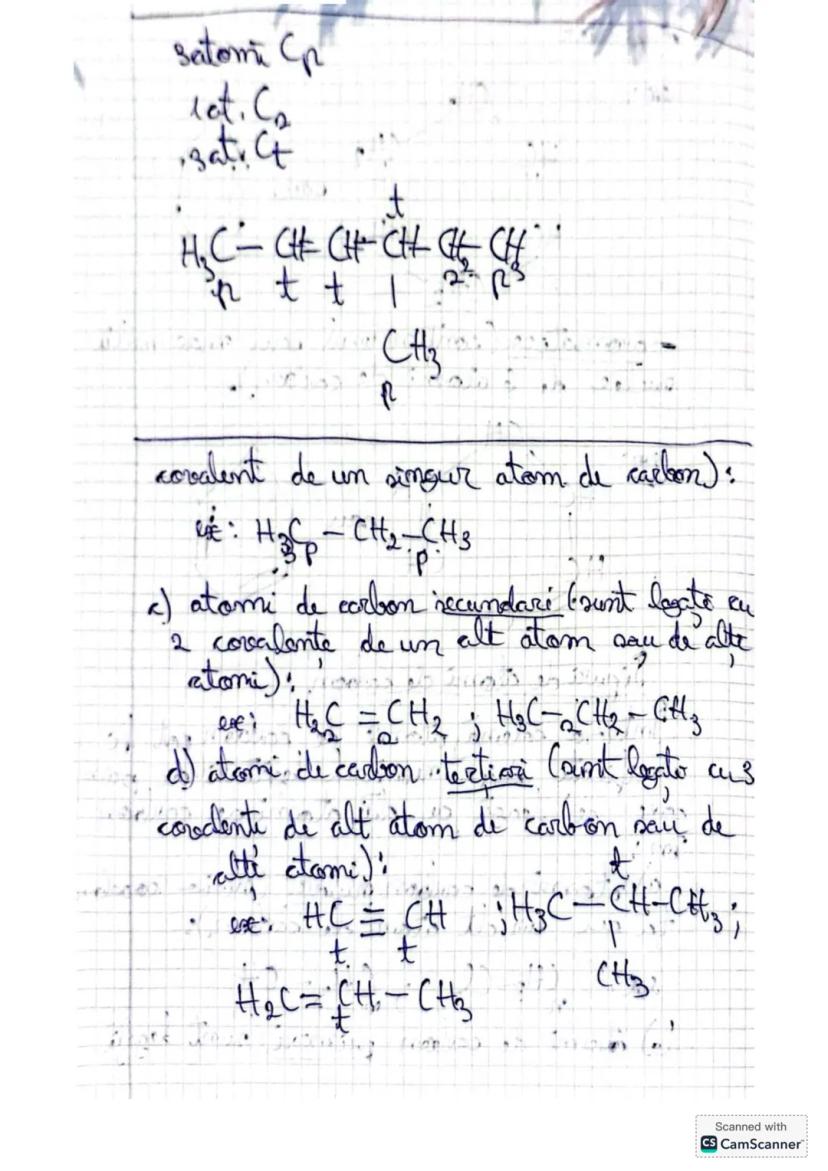 3atomi Cp
1at. C2
3at. Ct
t
H3C - CH = CH - CH - CH2 - CH3
p t t | 2 p
CH3
p
covalent de un singur atom de carbon):
ex: H3C - CH2 - CH3
p p
c) atomi de carbon secundari (sunt legați cu
2 covalențe de un alt atom sau de alți
atomi):
ex: H2C = CH2 ; H3C - CH2 - CH3
2 2 2
d) atomi de carbon terțiari (sunt legați cu 3
covalențe de alt atom de carbon sau de
alți atomi):
t
ex: HC ≡ CH ; H3C - CH - CH3 ;
t t |
CH3
H2C = CH - CH3
t
Scanned with
CS CamScanner